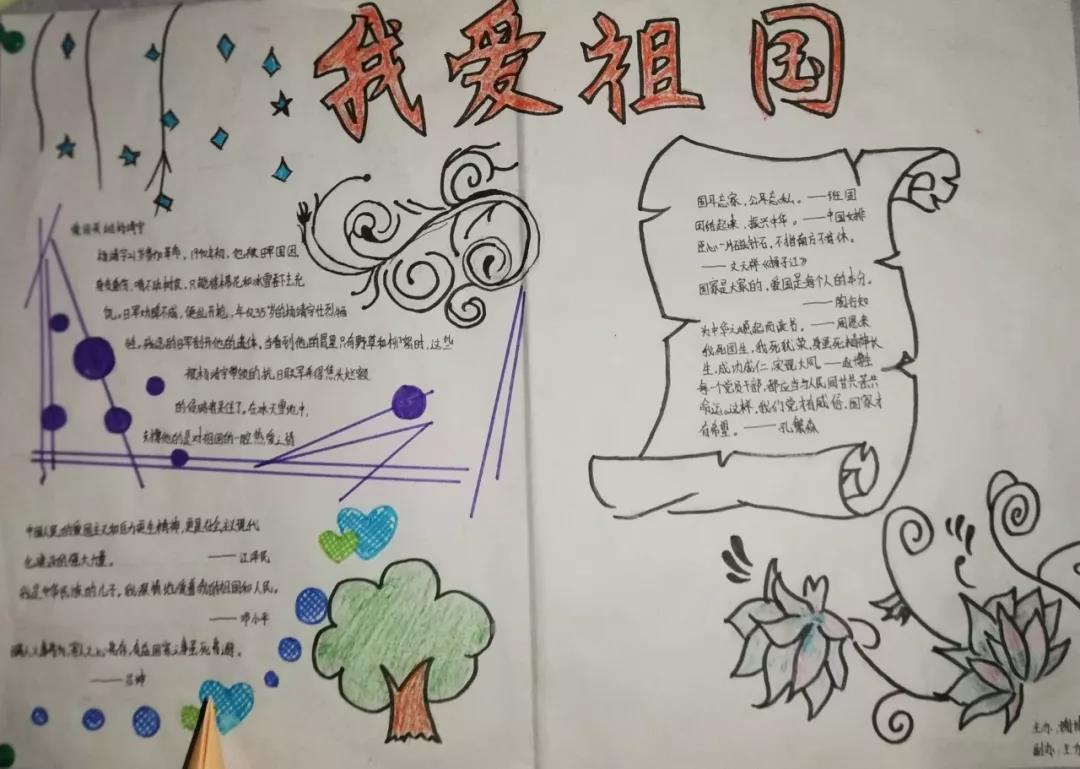 我爱祖国
爱国英雄杨靖宇
杨靖宇21岁参加革命，1940年初，他被日军围困
身负重伤，啃不动树皮，只能嚼棉花和冰雪吞下去充
饥。日军劝降不成，便乱开枪，年仅35岁的杨靖宇壮烈牺
牲。残忍的日军剖开他的遗体，当看到他的胃里只有野草和棉絮时，这些
被杨靖宇带领的抗日联军弄得焦头烂额
的侵略者呆住了。在冰天雪地中，
支撑他的是对祖国的一腔热爱之情
中国人民的爱国主义和自力更生精神，更是社会主义现代
化建设的强大力量。
——江泽民
我是中华民族的儿子，我深情地爱着我的祖国和人民。
——邓小平
——吕坤
国耳忘家，公耳忘私。——班固
团结起来，振兴中华。——中国女排
臣心一片磁针石，不指南方不肯休。
——文天祥《扬子江》
国家是大家的，爱国是每个人的本分。
——陶行知
为中华之崛起而读书。——周恩来
我死国生，我死犹荣，身虽死精神长
生，成功成仁，实现大同。——赵博生
每一个党员干部，都应当与人民同甘共苦共
命运。这样，我们党才有威信，国家才
有希望。——孔繁森
主办：谢
副办：王